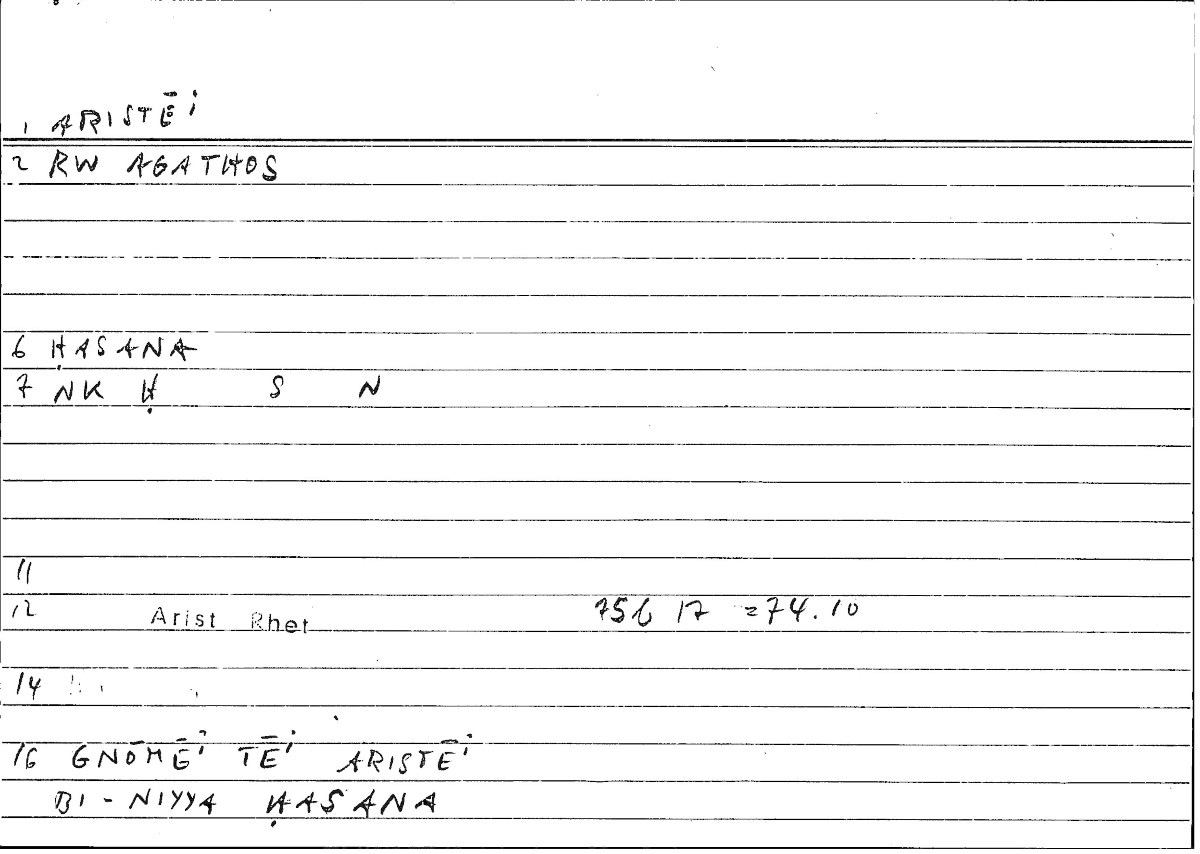 1 ARISTĒⁱ
2 RW AGATHOS
6 ḤASANA
7 NK Ḥ S N
11
12 Arist Rhet 75b 17 = 74.10
14
16 GNŌMĒⁱ TĒⁱ ARISTĒⁱ
BI - NIYYA ḤASANA